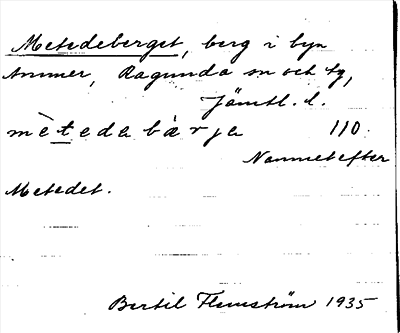 Metedeberget, berg i byn
Ammer, Ragunda sn och tg,
Jämtl. l.
mètedabàrja 110.
Namnet efter
Metedet.
Bertil Flemström 1935